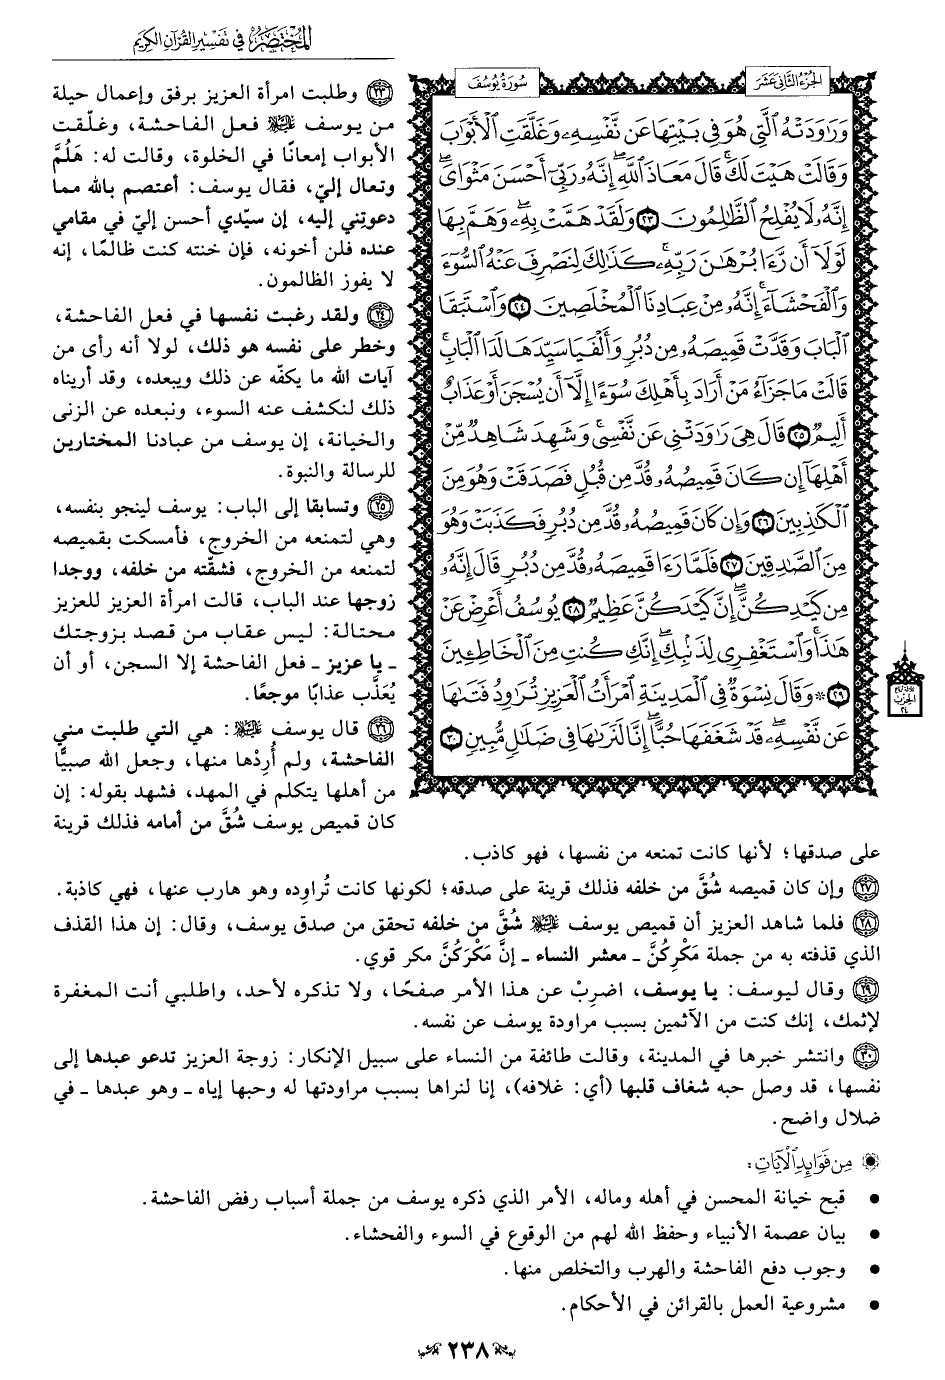 المختصر في تفسير القرآن الكريم
الجزء الثاني عشر
سورة يوسف
وَرَٰوَدَتْهُ ٱلَّتِي هُوَ فِي بَيْتِهَا عَن نَّفْسِهِۦ وَغَلَّقَتِ ٱلْأَبْوَٰبَ
وَقَالَتْ هَيْتَ لَكَ ۚ قَالَ مَعَاذَ ٱللَّهِ ۖ إِنَّهُۥ رَبِّيٓ أَحْسَنَ مَثْوَايَ ۖ
إِنَّهُۥ لَا يُفْلِحُ ٱلظَّٰلِمُونَ ٢٣ وَلَقَدْ هَمَّتْ بِهِۦ ۖ وَهَمَّ بِهَا
لَوْلَآ أَن رَّءَا بُرْهَٰنَ رَبِّهِۦ ۚ كَذَٰلِكَ لِنَصْرِفَ عَنْهُ ٱلسُّوٓءَ
وَٱلْفَحْشَآءَ ۚ إِنَّهُۥ مِنْ عِبَادِنَا ٱلْمُخْلَصِينَ ٢٤ وَٱسْتَبَقَا
ٱلْبَابَ وَقَدَّتْ قَمِيصَهُۥ مِن دُبُرٍ وَأَلْفَيَا سَيِّدَهَا لَدَا ٱلْبَابِ ۚ
قَالَتْ مَا جَزَآءُ مَنْ أَرَادَ بِأَهْلِكَ سُوٓءًا إِلَّآ أَن يُسْجَنَ أَوْ عَذَابٌ
أَلِيمٌ ٢٥ قَالَ هِيَ رَٰوَدَتْنِي عَن نَّفْسِي ۚ وَشَهِدَ شَاهِدٌ مِّنْ
أَهْلِهَآ إِن كَانَ قَمِيصُهُۥ قُدَّ مِن قُبُلٍ فَصَدَقَتْ وَهُوَ مِنَ
ٱلْكَٰذِبِينَ ٢٦ وَإِن كَانَ قَمِيصُهُۥ قُدَّ مِن دُبُرٍ فَكَذَبَتْ وَهُوَ
مِنَ ٱلصَّٰدِقِينَ ٢٧ فَلَمَّا رَءَا قَمِيصَهُۥ قُدَّ مِن دُبُرٍ قَالَ إِنَّهُۥ
مِن كَيْدِكُنَّ ۖ إِنَّ كَيْدَكُنَّ عَظِيمٌ ٢٨ يُوسُفُ أَعْرِضْ عَنْ
هَٰذَا ۚ وَٱسْتَغْفِرِي لِذَنۢبِكِ ۖ إِنَّكِ كُنتِ مِنَ ٱلْخَاطِـِٔينَ
٢٩ ۞ وَقَالَ نِسْوَةٌ فِي ٱلْمَدِينَةِ ٱمْرَأَتُ ٱلْعَزِيزِ تُرَٰوِدُ فَتَىٰهَا
عَن نَّفْسِهِۦ ۖ قَدْ شَغَفَهَا حُبًّا ۖ إِنَّا لَنَرَىٰهَا فِي ضَلَٰلٍ مُّبِينٍ ٣٠
الحزب
٢٤
٢٣ وطلبت امرأة العزيز برفق وإعمال حيلة
من يوسف ﵇ فعل الفاحشة، وغلّقت
الأبواب إمعانًا في الخلوة، وقالت له: هَلُمَّ
وتعال إليّ، فقال يوسف: أعتصم بالله مما
دعوتِني إليه، إن سيّدي أحسن إليّ في مقامي
عنده فلن أخونه، فإن خنته كنت ظالمًا، إنه
لا يفوز الظالمون.
٢٤ ولقد رغبت نفسها في فعل الفاحشة،
وخطر على نفسه هو ذلك، لولا أنه رأى من
آيات الله ما يكفّه عن ذلك ويبعده، وقد أريناه
ذلك لنكشف عنه السوء، ونبعده عن الزنى
والخيانة، إن يوسف من عبادنا المختارين
للرسالة والنبوة.
٢٥ وتسابقا إلى الباب: يوسف لينجو بنفسه،
وهي لتمنعه من الخروج، فأمسكت بقميصه
لتمنعه من الخروج، فشقّته من خلفه، ووجدا
زوجها عند الباب، قالت امرأة العزيز للعزيز
محتالة: ليس عقاب من قصد بزوجتك
ـ يا عزيز ـ فعل الفاحشة إلا السجن، أو أن
يُعَذَّب عذابًا موجعًا.
٢٦ قال يوسف ﵇: هي التي طلبت مني
الفاحشة، ولم أُرِدْها منها، وجعل الله صبيًّا
من أهلها يتكلم في المهد، فشهد بقوله: إن
كان قميص يوسف شُقَّ من أمامه فذلك قرينة
على صدقها؛ لأنها كانت تمنعه من نفسها، فهو كاذب.
٢٧ وإن كان قميصه شُقَّ من خلفه فذلك قرينة على صدقه؛ لكونها كانت تُراوِده وهو هارب عنها، فهي كاذبة.
٢٨ فلما شاهد العزيز أن قميص يوسف ﵇ شُقَّ من خلفه تحقق من صدق يوسف، وقال: إن هذا القذف
الذي قذفته به من جملة مَكْرِكُنَّ ـ معشر النساء ـ إنَّ مَكْرَكُنَّ مكر قوي.
٢٩ وقال ليوسف: يا يوسف، اضرِبْ عن هذا الأمر صفحًا، ولا تذكره لأحد، واطلبي أنت المغفرة
لإثمك، إنك كنت من الآثمين بسبب مراودة يوسف عن نفسه.
٣٠ وانتشر خبرها في المدينة، وقالت طائفة من النساء على سبيل الإنكار: زوجة العزيز تدعو عبدها إلى
نفسها، قد وصل حبه شغاف قلبها (أي: غلافه)، إنا لنراها بسبب مراودتها له وحبها إياه ـ وهو عبدها ـ في
ضلال واضح.
مِن فَوَائِدِ الْآيَاتِ:
● قبح خيانة المحسن في أهله وماله، الأمر الذي ذكره يوسف من جملة أسباب رفض الفاحشة.
● بيان عصمة الأنبياء وحفظ الله لهم من الوقوع في السوء والفحشاء.
● وجوب دفع الفاحشة والهرب والتخلص منها.
● مشروعية العمل بالقرائن في الأحكام.
٢٣٨